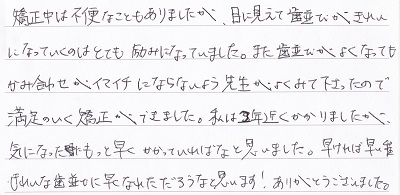 矯正中は不便なこともありましたが、目に見えて歯並びがきれい
になっていくのはとても励みになっていました。また歯並びがよくなっても
かみ合わせがイマイチにならないよう先生がよくみて下さったので
満足のいく矯正ができました。私は3年近くかかりましたが、
気になったらもっと早くかかっていればなと思いました。早ければ早い程
きれいな歯並びに早くなれただろうなと思います!ありがとうございました。